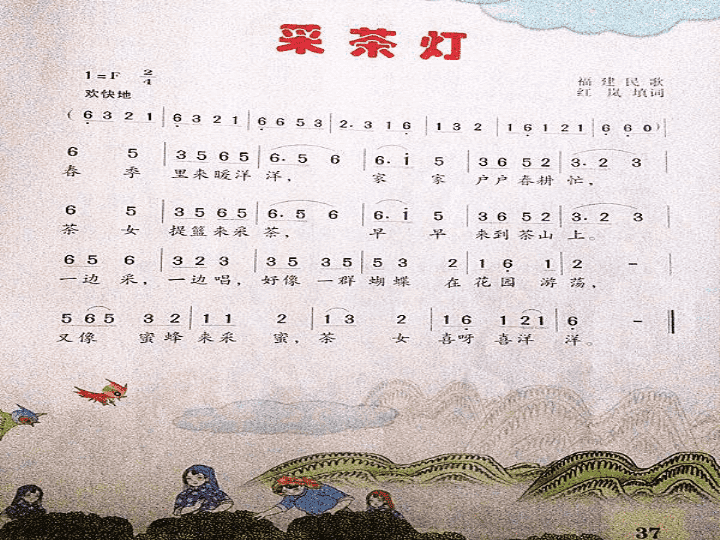 采茶灯
1=F 2/4
福建民歌
欢快地
红岚填词
(6321 | 6321 | 6653 | 2.316 | 132 | 16121 | 660) |
6 5 | 3565 | 6.56 | 6.i 5 | 3652 | 3.23 |
春季 里来暖洋洋， 家家 户户春耕忙，
6 5 | 3565 | 6.56 | 6.i 5 | 3652 | 3.23 |
茶女 提篮来采茶， 早早 来到茶山上。
656 | 323 | 3535 | 53 2 | 161 | 2 - |
一边采， 一边唱， 好像一群蝴蝶在花园游荡，
565 32 | 11 2 | 13 2 | 16 121 | 6 - ‖
又像蜜蜂来采蜜， 茶女喜呀喜洋洋。
37